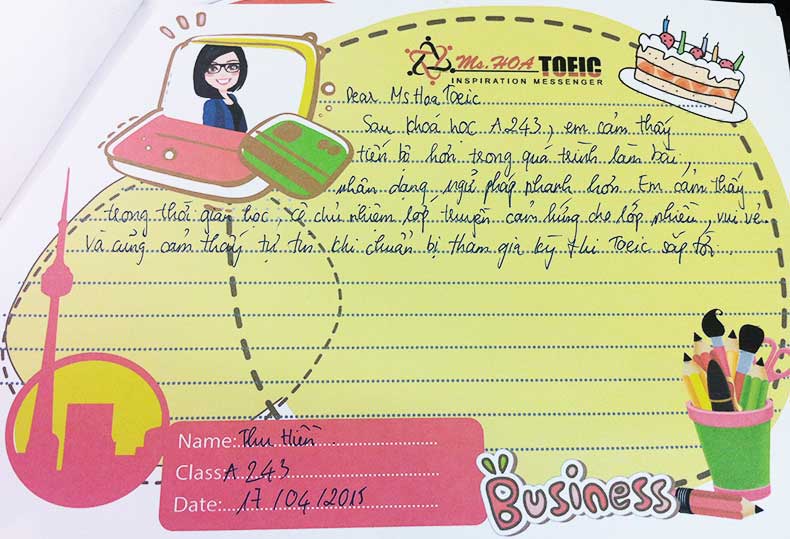 Ms. HOA TOEIC
INSPIRATION MESSENGER
Dear Ms Hoa Toeic
Sau khoá học A243, em cảm thấy
tiến bộ hơn trong quá trình làm bài,
nhận dạng ngữ pháp nhanh hơn. Em cảm thấy
trong thời gian học, cô chủ nhiệm lớp truyền cảm hứng cho lớp nhiều, vui vẻ.
Và cũng cảm thấy tự tin khi chuẩn bị tham gia kỳ thi Toeic sắp tới.
Name: Thu Hiền
Class: A 243
Date: 17/04/2015
Business